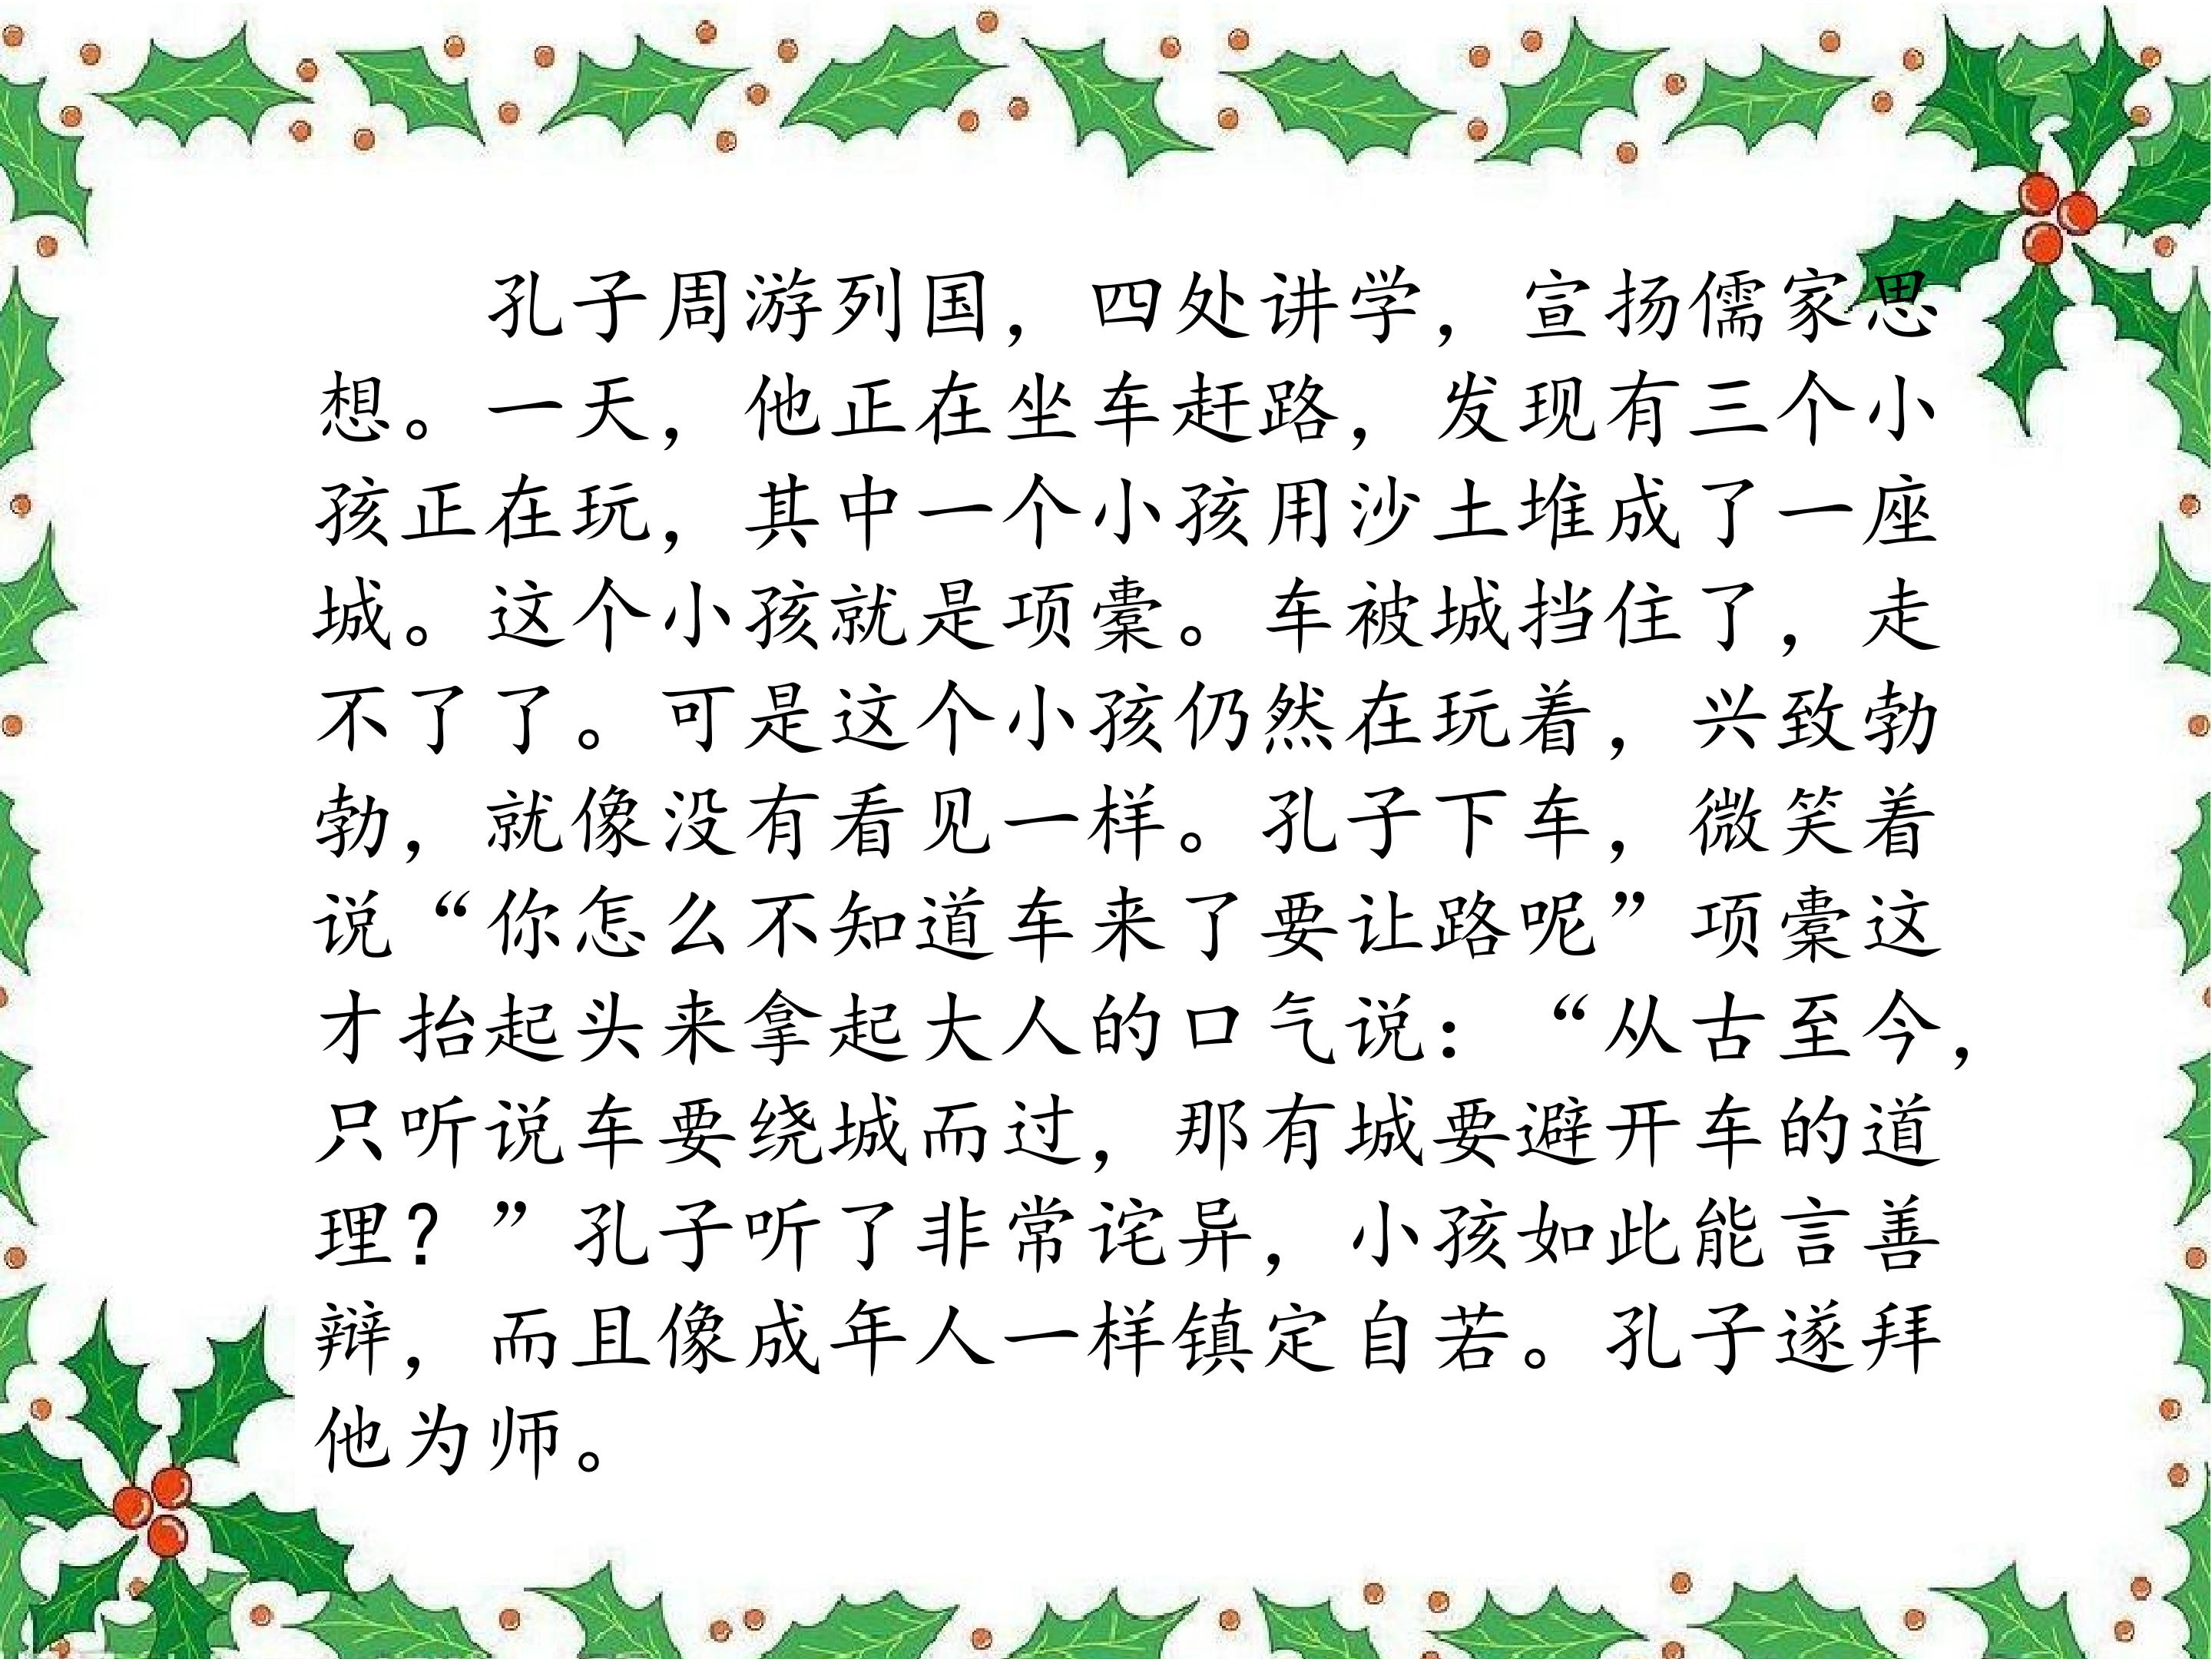 孔子周游列国，四处讲学，宣扬儒家思
想。一天，他正在坐车赶路，发现有三个小
孩正在玩，其中一个小孩用沙土堆成了一座
城。这个小孩就是项橐。车被城挡住了，走
不了了。可是这个小孩仍然在玩着，兴致勃
勃，就像没有看见一样。孔子下车，微笑着
说“你怎么不知道车来了要让路呢”项橐这
才抬起头来拿起大人的口气说：“从古至今，
只听说车要绕城而过，那有城要避开车的道
理？”孔子听了非常诧异，小孩如此能言善
辩，而且像成年人一样镇定自若。孔子遂拜
他为师。